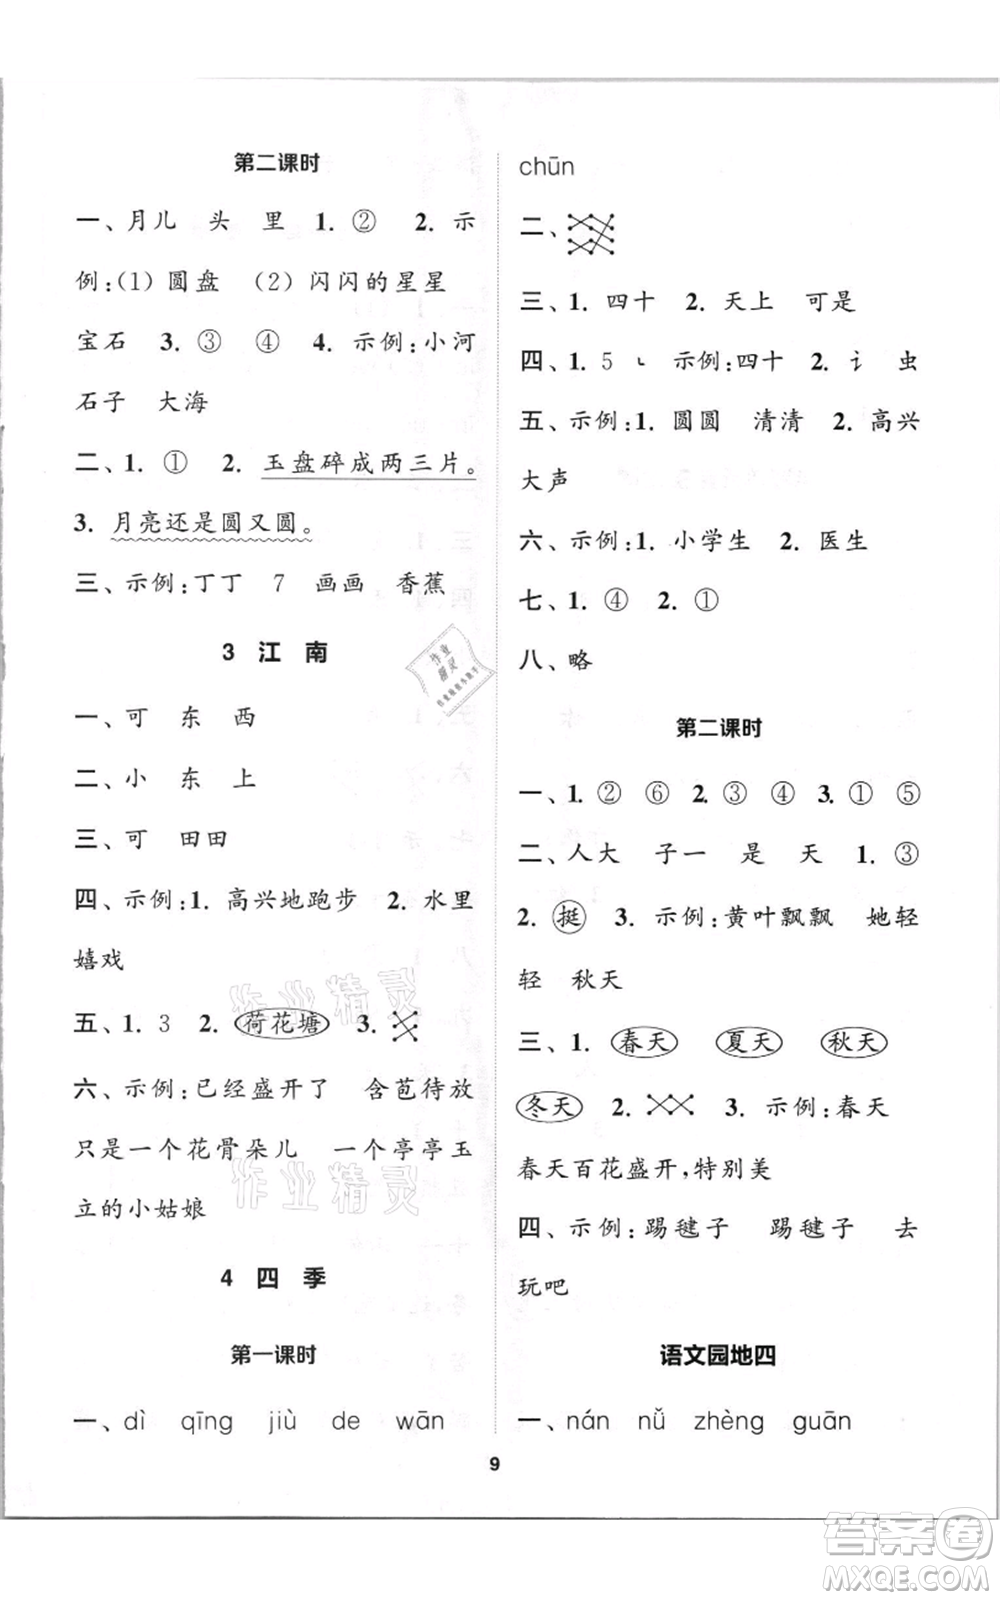 第二课时
一、月儿 头 里 1. ② 2. 示
例:(1) 圆盘 (2) 闪闪的星星
宝石 3. ③ ④ 4. 示例:小河
石子 大海
二、1. ① 2. 玉盘碎成两三片。
3. 月亮还是圆又圆。
三、示例:丁丁 7 画画 香蕉
3 江 南
一、可 东 西
二、小 东 上
三、可 田田
四、示例:1. 高兴地跑步 2. 水里
嬉戏
五、1. 3 2. 荷花塘 3.
六、示例:已经盛开了 含苞待放
只是一个花骨朵儿 一个亭亭玉
立的小姑娘
4 四 季
第一课时
一、dì qīng jiù de wān
chūn
二、
三、1. 四十 2. 天上 可是
四、1. 5 ㇃ 示例:四十 2. 讠 虫
五、示例:1. 圆圆 清清 2. 高兴
大声
六、示例:1. 小学生 2. 医生
七、1. ④ 2. ①
八、略
第二课时
一、1. ② ⑥ 2. ③ ④ 3. ① ⑤
二、人大 子一 是 天 1. ③
2. 挺 3. 示例:黄叶飘飘 她轻
轻 秋天
三、1. 春天 夏天 秋天
冬天 2. 3. 示例:春天
春天百花盛开,特别美
四、示例:踢毽子 踢毽子 去
玩吧
语文园地四
一、nán nǚ zhèng guān
9
作业精灵
作业精灵
作业
精灵
答案卷
MXQE.COM